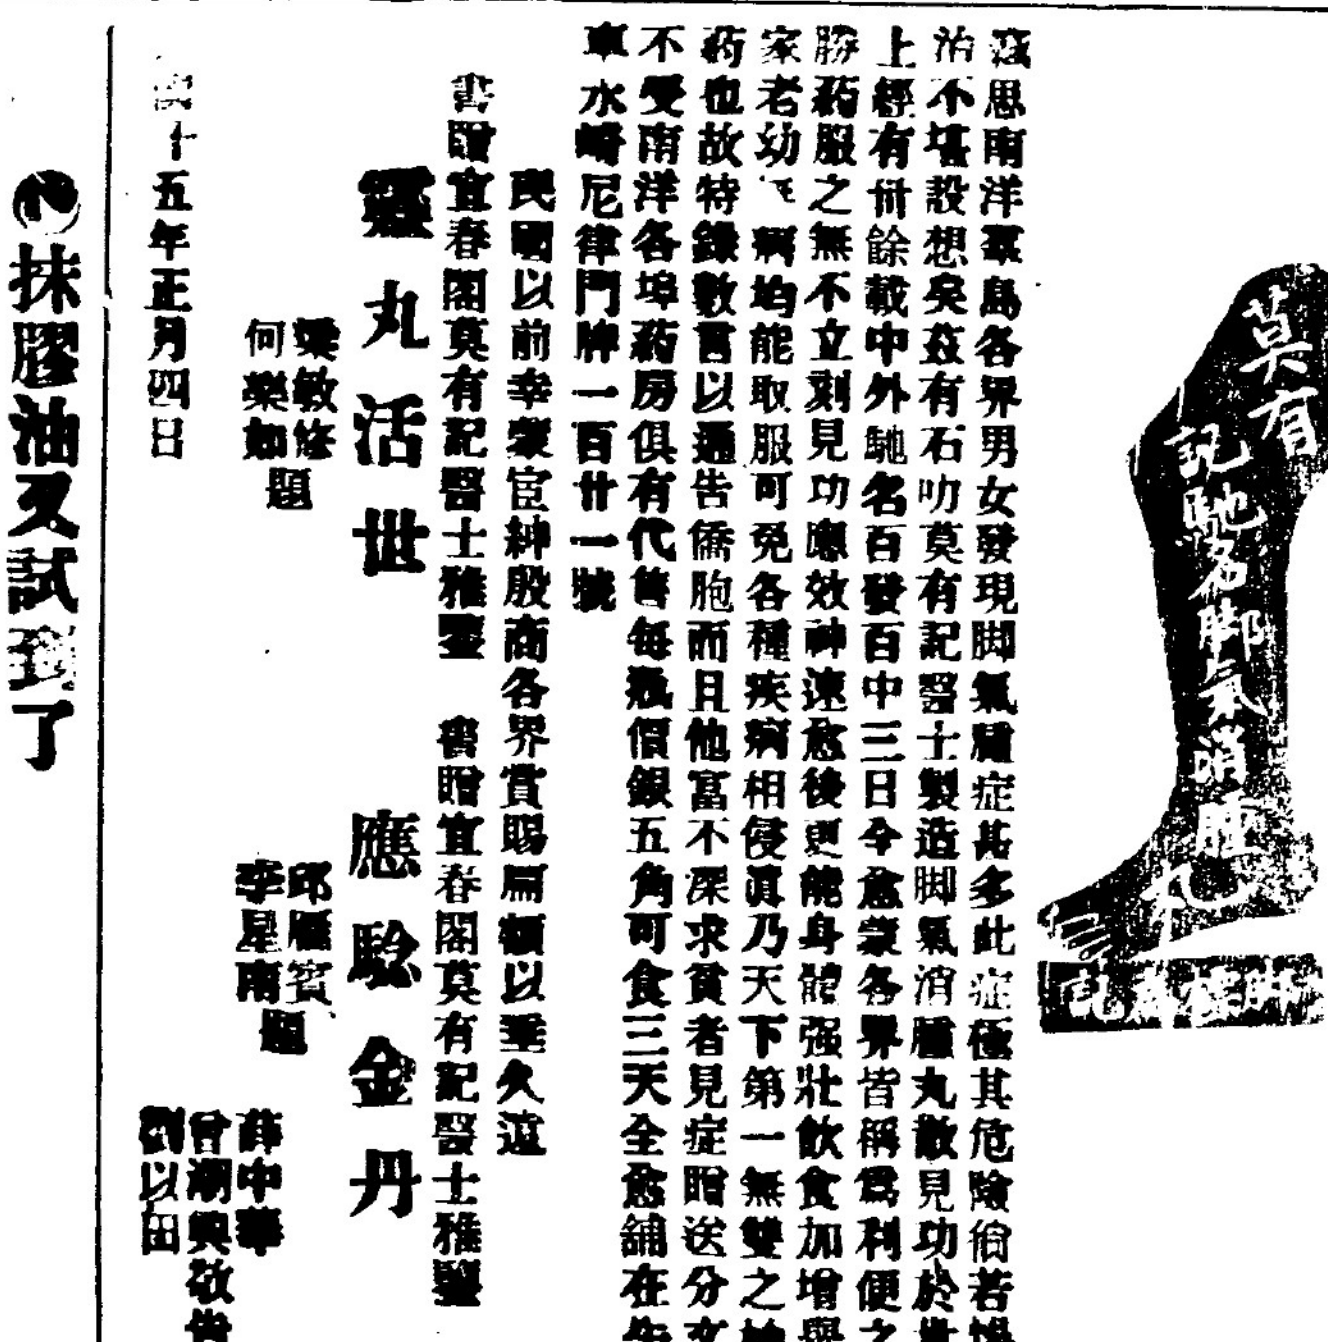 莫有
記馳名脚氣消腫丸
脚
思南洋羣島各界男女發現脚氣腫症甚多此症極其危險倘若
治不堪設想矣茲有石叻莫有記醫士製造脚氣消腫丸散見功於世
上經有卅餘載中外馳名百發百中三日全愈蒙各界皆稱爲利便之
勝葯服之無不立刻見功應效神速愈後更能身體强壯飲食加增
家老幼無病均能取服可免各種疾病相侵眞乃天下第一無雙之
葯也故特錄數言以通告僑胞而且他富不深求貧者見症贈送分文
不受南洋各埠葯房俱有代售每瓶價銀五角可食三天全愈舖在
車水嶹尼律門牌一百廿一號
民國以前幸蒙宦紳殷商各界賞賜扁額以垂久遠
書贈宜春閣莫有記醫士雅鑒
靈丸活世
梁敏修
何樂如
題
書贈宜春閣莫有記醫士雅鑒
應騐金丹
邱雁賓
李星南
題
十五年正月四日
薛中華
曾潮興敬告
劉以田
抹膠油又試到了